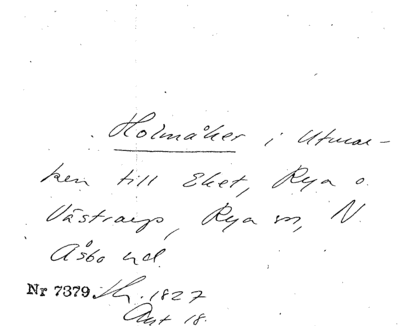 Holmåker i Utmar-
ken till Eket, Rya o.
Västraryd, Rya sn, N.
Åsbo hd.
Nr 7379. 1827
Akt 18.